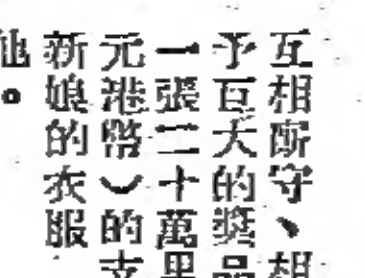 互相廝守、相
予巨大的獎品
一張二十萬男
元港幣︶的支
新娘的衣服
他。